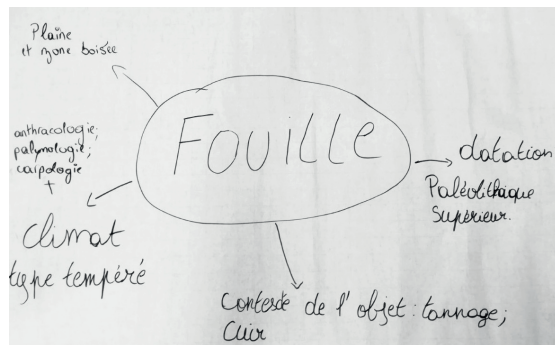 Plaine
et zone boisée
FOUILLE
anthracologie;
palynologie;
caipologie
+
climat
type tempéré
datation
Paléolithique
Supérieur.
Contexte de l'objet: tannage;
Cuir